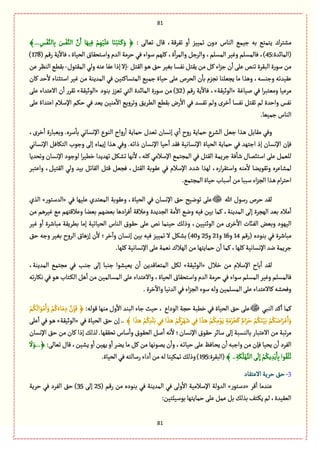 مشترك يتمتع به جميع الناس دون تمييز أو تفرقة ، قال تعالى : ﴿ وَكَتَبْنَا عَلَيْهِمْ فِيهَا أَنَّ النَّفْسَ بِالنَّفْسِ...﴾
(المائدة:45)، فالمسلم وغير المسلم ، والرجل والمرأة، كلهم سواء في حرمة الدم واستحقاق الحياة ، فالآية رقم (178)
من سورة البقرة تنص على أن جزاء كل من يقتل نفسا بغير حق هو القتل -إلا إذا عفا عنه ولي المقتول- بقطع النظر عن
عقيدته وجنسه ، وهذا ما يجعلنا نجزم بأن الحرص على حياة جميع المتساكنين في المدينة من غير استثناء لأحد كان
مرعيا ومعتبرا في صياغة «الوثيقة» ، فالآية رقم (32) من سورة المائدة التي تعزز بنود «الوثيقة» تقرر أن الاعتداء على
نفس واحدة ثم تقتل نفسا أخرى ولم تفسد في الأرض بقطع الطريق وترويع الآمنين يعد في حكم الإسلام اعتداء على
الناس جميعا.
وفي مقابل هذا جعل الشرع حماية روح أي إنسان تعدل حماية أرواح النوع الإنساني بأسره. وبعبارة أخرى ،
فإن الإنسان إذ اجتهد في حماية الحياة الإنسانية فقد أحيا الإنسان ذاته. وفي هذا إيماء إلى وجوب التكافل الإنساني
للعمل على استئصال شأفة جريمة القتل في المجتمع الإسلامي كله ، لأنها تشكل تهديدا خطيرا لوجود الإنسان وتحديا
لمشاعره وتقويضا لأمنه واستقراره ، لهذا شدد الإسلام في عقوبة القتل ، فجعل قتل القاتل بيد ولي القتيل ، واعتبر
احترام هذا الجزاء سببا من أسباب حياة المجتمع.
لقد حرص رسول الله ﷺ على توضيح حق الإنسان في الحياة ، وعقوبة المعتدي عليها في «الدستور» الذي
أملاه بعد الهجرة إلى المدينة ، كما بين فيه وضع الأمة الجديدة وعلاقة أفرادها بعضهم بعضا وعلاقتهم مع غيرهم من
اليهود وبعض الفئات الأخرى من الوثنيين ، وذلك حينما نص على حقوق الناس الحياتية إما بطريقة مباشرة أو غير
مباشرة في بنوده (رقم 14 و16 و21 و25 و40) بشكل لا تمييز فيه بين إنسان وآخر ، لأن إزهاق الروح بغير وجه حق
جريمة ضد الإنسانية كلها ، كما أن حمايتها من الهلاك نعمة على الإنسانية كلها.
لقد أباح الإسلام من خلال «الوثيقة» لكل المتعاقدين أن يعيشوا جنبا إلى جنب في مجتمع المدينة ،
فالمسلم وغير المسلم سواء في حرمة الدم واستحقاق الحياة ، والاعتداء على المسالمين من أهل الكتاب هو في نكارته
وفحشه كالاعتداء على المسلمين وله سوء الجزاء في الدنيا والآخرة .
كما أكد النبي ﷺ على حق الحياة في خطبة حجة الوداع ، حيث جاء البند الأول منها قوله: ﴿
..إن حق الحياة في «الوثيقة» هو في أعلى
مرتبة من الاعتبار بالنسبة إلى سائر حقوق الإنسان ؛ لأنه أصل الحقوق وأساس تحققها، لذلك إذا كان من حق الإنسان
الفرد أن يحيا فإن من واجبه أن يحافظ على حياته ، وأن يصونها من كل ما يضر أو يهين أو يشين ، قال تعالى: ﴿...وَلَا
تُلْقُوا بِأَيْدِيكُمْ إِلَى التَّهْلُكَةِ...﴾ (البقرة:195) وذلك تمكينا له من أداء رسالته في الحياة.
3- حق حرية الاعتقاد
عندما أقر «دستور» الدولة الإسلامية الأولى في المدينة في بنوده من رقم (25 إلى 35) حق الفرد في حرية
العقيدة ، لم يكتف بذلك بل عمل على حمايتها بوسيلتين:
81